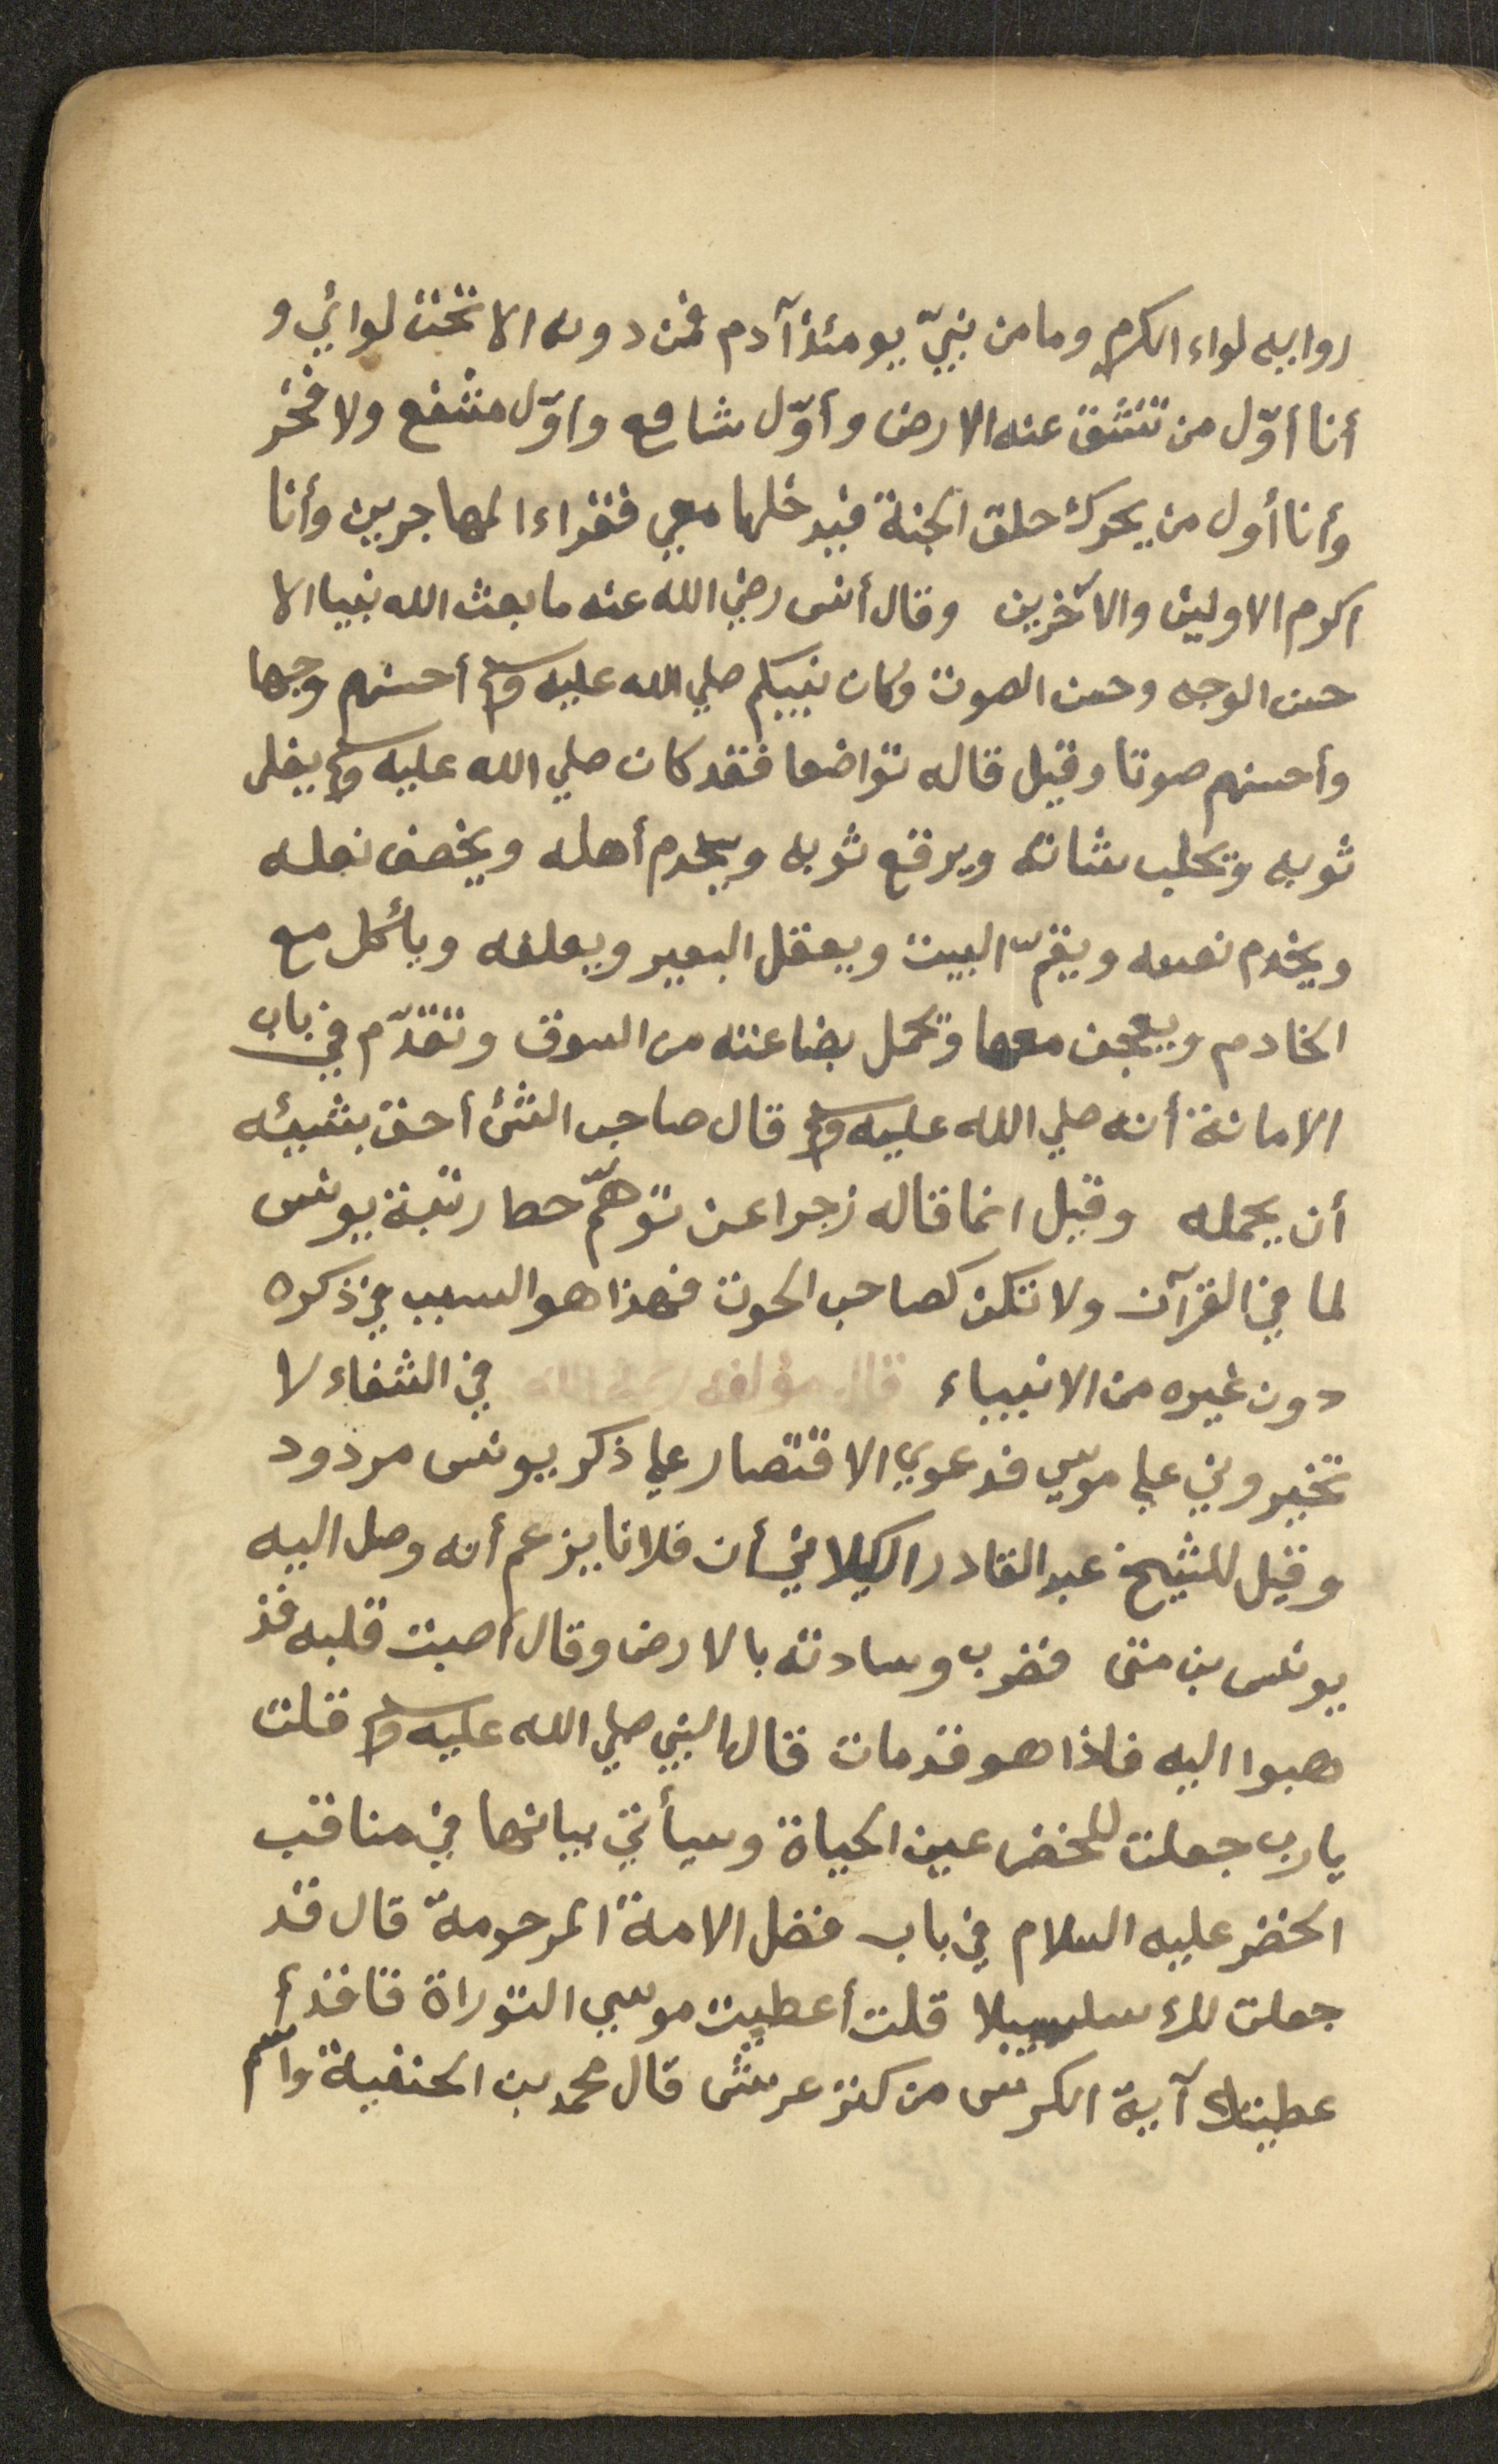 روايه لواء الكرم وما من نبيّ يومئذ آدم فمن دونه الا تحت لوائي و
أنا أوّل من تنشق عنه الارض وأوّل شافع وأوّل مشفع ولا فخر
وأنا أول من يحرك حلق الجنة فيدخلها معي فقراء المهاجرين وأنا
اكرم الاولين والآخرين وقال أنس رضي الله عنه ما بعث الله نبيا الا
حسن الوجه وحسن الصوت وكان نبيكم صلي الله عليه وسلم أحسنهم وجها
وأحسنهم صوتا وقيل قاله تواضعا فقد كان صلي الله عليه وسلم يفلى
ثوبه ويحلب شاته ويرقع ثوبه ويخدم أهله ويخصف نعله
ويخدم نفسه ويقمّ البيت ويعقل البعير ويعلفه ويأكل مع
الخادم ويعجن معها ويحمل بضاعته من السوق وتقدّم في باب
الامانة أنه صلي الله عليه وسلم قال صاحب الشئ أحق بشيئه
أن يحمله وقيل انما قاله زجرا عن توهّم حط رتبة يونس
لما في القرآن ولا تكن كصاحب الحوت فهذا هو السبب في ذكره
دون غيره من الانبياء قال مؤلفه رحمه الله في الشفاء لا
تخيروني علي موسي فدعوي الاقتصار علي ذكر يونس مردود
وقيل للشيخ عبد القادر الكيلاني أن فلانا يزعم أنه وصل اليه
يونس بن متى فضرب وسادته بالارض وقال اصبت قلبه فذ
هبوا اليه فاذا هو قد مات قال النبي صلي الله عليه وسلم قلت
يارب جعلت للخضر عين الحياة وسيأتي بيانها في مناقب
الخضر عليه السلام في باب فضل الامة المرحومة قال قد
جعلت لك سلسبيلا قلت أعطيت موسي التوراة قا قد أ
عطيتك آية الكرسى من كنز عرشى قال محمد بن الحنفية واسم